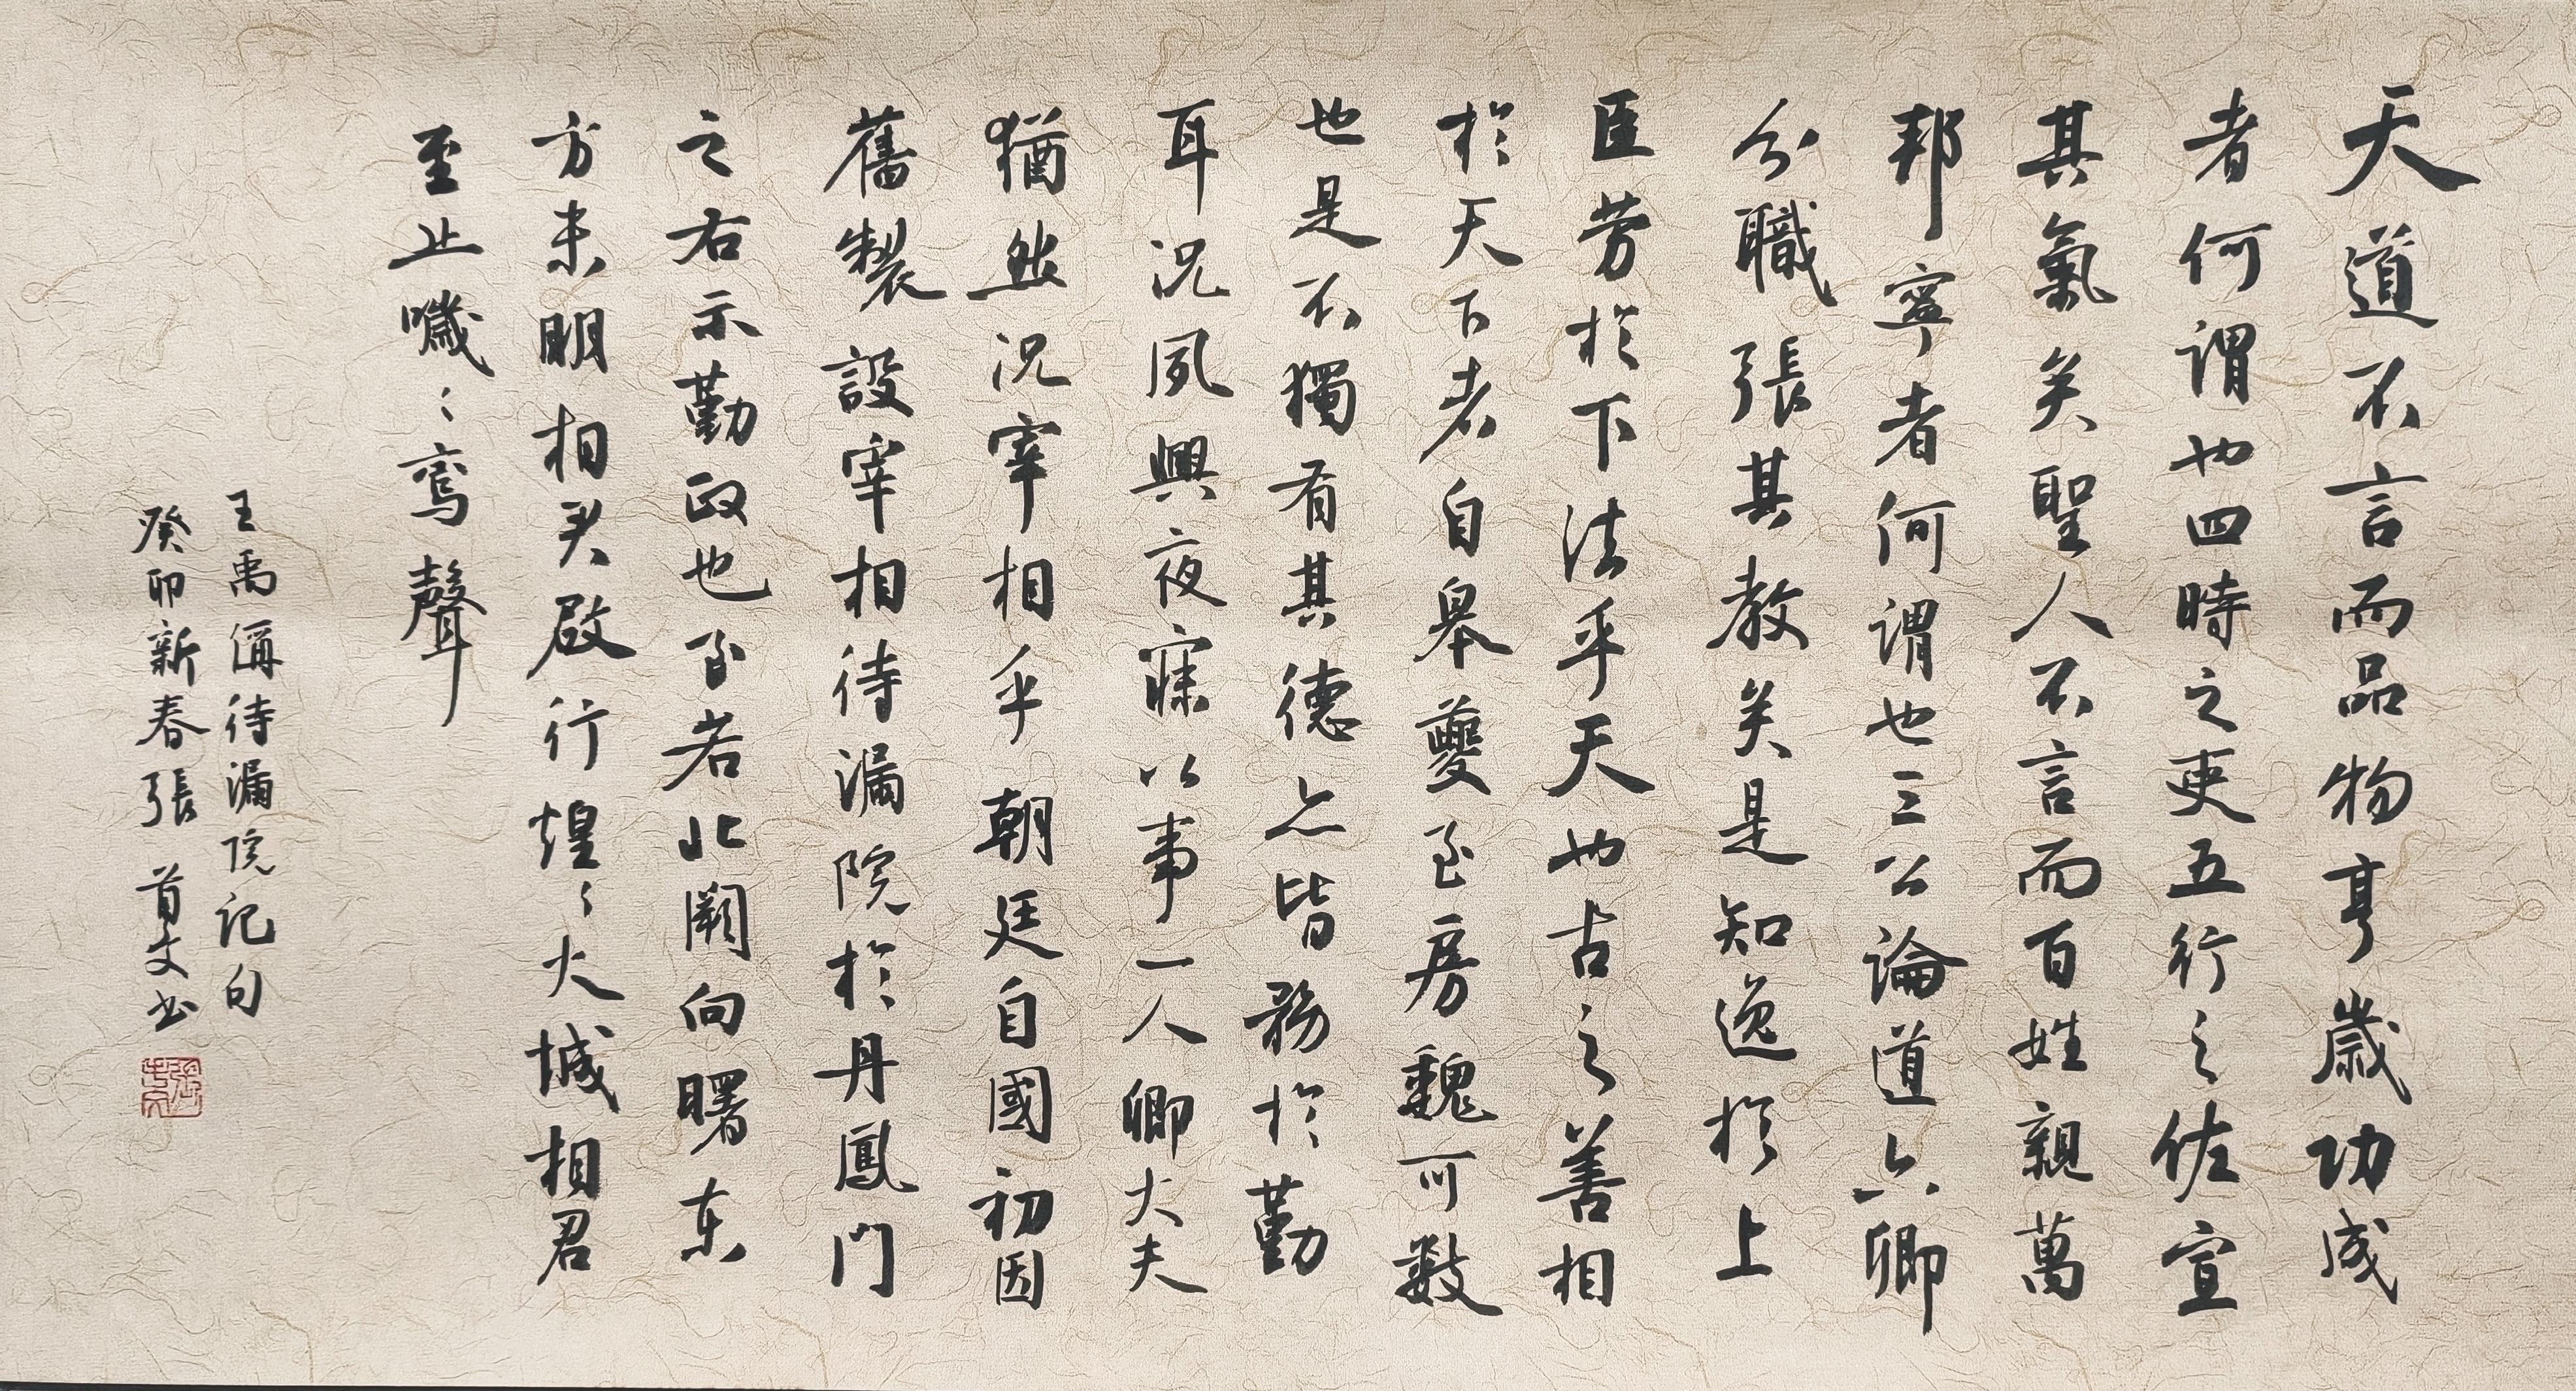 天道不言而品物亨歲功成
者何謂也四時之吏五行之佐宣
其氣矣聖人不言而百姓親萬
邦寧者何謂也三公論道六卿
分職張其教矣是知逸於上
臣劳於下法乎天也古之善相
於天下者自皋夔至房魏可數
也是不獨有其德亦皆務於勤
耳況夙興夜寐以事一人卿大夫
猶然況宰相乎朝廷自國初因
舊製設宰相待漏院於丹鳳門
之右示勤政也至若北闕向曙东
方未明相尹啟行煌々火城相君
至止噦々鸾聲
王禹偁待漏院記句
癸卯新春張首文书